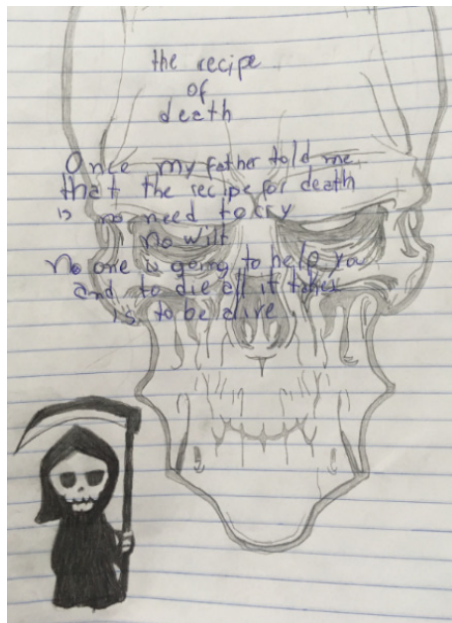 the recipe
of
death
Once my father told me
that the recipe for death
is no need to cry
no wilt
No one is going to help you
and to die all it takes
is to be alive.